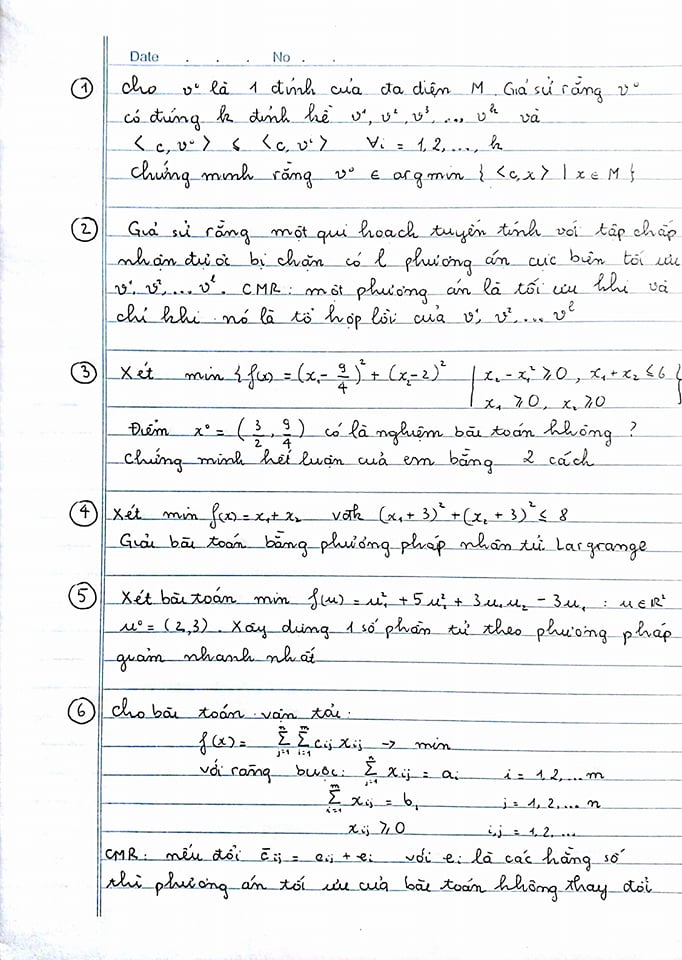 Date . . . No . .
① Cho v° là 1 đỉnh của đa diện M. Giả sử rằng v°
có đúng k đỉnh kề v¹, v², v³, ..., vᵏ và
< c, v° > ≤ < c, vⁱ > ∀i = 1, 2, ..., k
Chứng minh rằng v° ∈ argmin { <c,x> | x ∈ M }
② Giả sử rằng một qui hoạch tuyến tính với tập chấp
nhận được bị chặn có l phương án cực biên tối ưu
v¹, v², ... vˡ. CMR: một phương án là tối ưu khi và
chỉ khi nó là tổ hợp lồi của v¹, v², ... vˡ
③ Xét min { f(x) = (x₁ - 9/4)² + (x₂ - 2)² | x₂ - x₁² ≥ 0, x₁ + x₂ ≤ 6
x₁ ≥ 0, x₂ ≥ 0 }
Điểm x° = (3/2, 9/4) có là nghiệm bài toán không ?
Chứng minh kết luận của em bằng 2 cách
④ Xét min f(x) = x₁ + x₂ vđk (x₁ + 3)² + (x₂ + 3)² ≤ 8
Giải bài toán bằng phương pháp nhân tử Largrange
⑤ Xét bài toán min f(u) = u₁² + 5u₂² + 3u₁u₂ - 3u₁ : u ∈ ℝ²
u° = (2,3). Xây dựng 1 số phần tử theo phương pháp
giảm nhanh nhất
⑥ Cho bài toán vận tải:
f(x) = Σⱼ₌₁ⁿ Σᵢ₌₁ᵐ cᵢⱼ xᵢⱼ → min
với ràng buộc: Σⱼ₌₁ⁿ xᵢⱼ = aᵢ i = 1 2, ... m
Σᵢ₌₁ᵐ xᵢⱼ = bⱼ j = 1, 2, ... n
xᵢⱼ ≥ 0 i,j = 1, 2, ...
CMR: nếu đổi c̄ᵢⱼ = cᵢⱼ + eᵢ với eᵢ là các hằng số
thì phương án tối ưu của bài toán không thay đổi